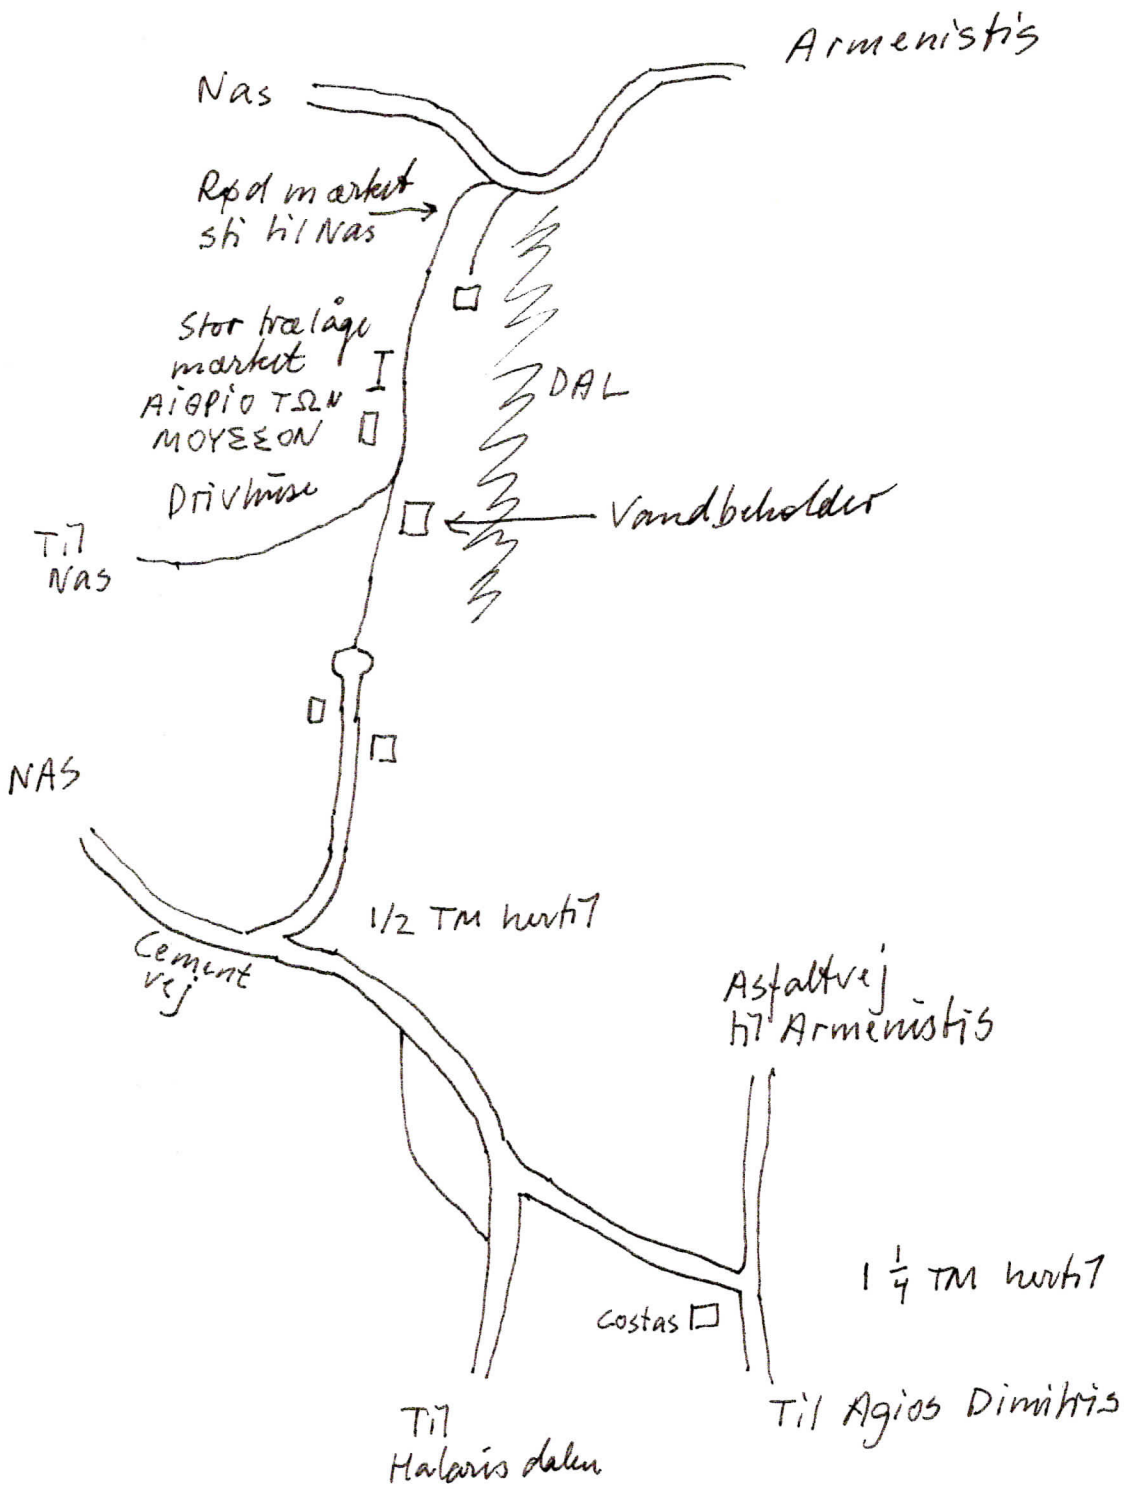 Armenistis
Nas
Rød mærket
sti til Nas
Stor trælåge
mærket
ΑΙΘΡΙΟ ΤΩΝ
ΜΟΥΣΣΟΝ
DAL
Drivhuse
Vandbeholder
Til
Nas
NAS
1/2 TM hertil
Cement
vej
Asfaltvej
til Armenistis
1 1/4 TM hertil
Costas
Til Agios Dimitris
Til
Halaris dalen